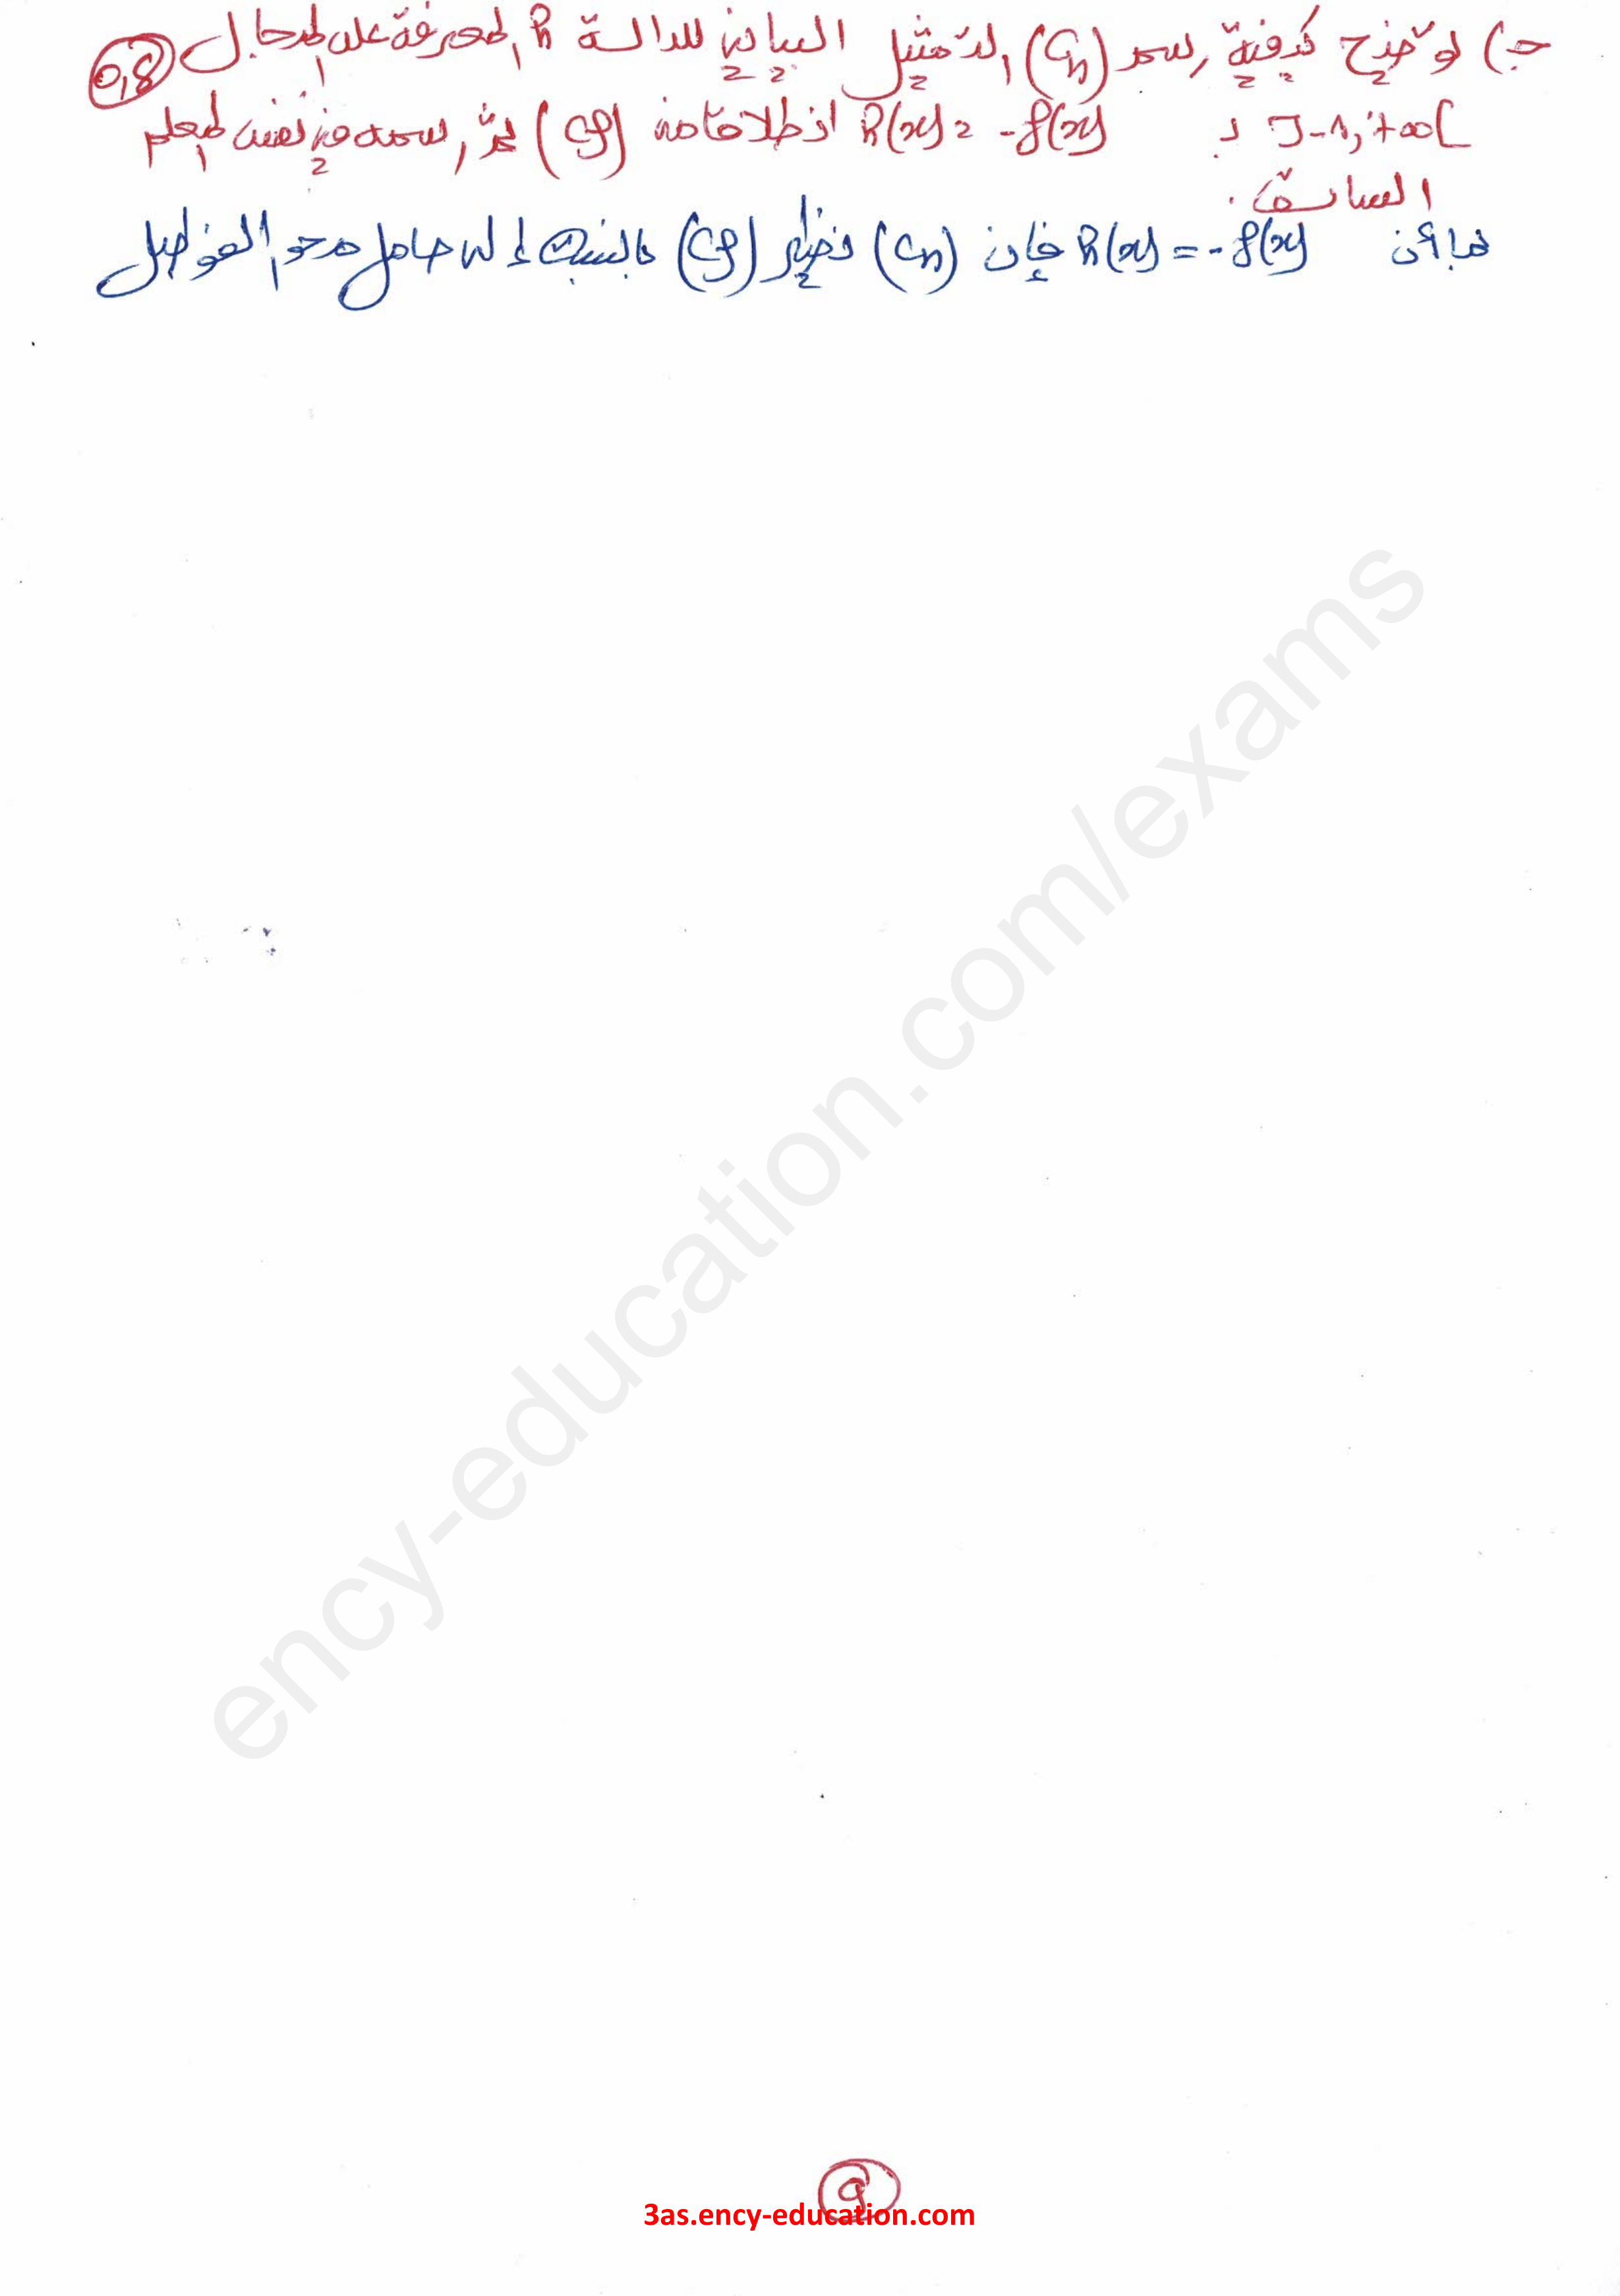 ج) توضيح كيفية رسم (Ch) التمثيل البياني للدالة h المعرفة على المجال 0,8
]-1,+∞[ بـ h(x) = -f(x) انطلاقا من (Cf) ثم رسمه في نفس المعلم
السابق.
بما أن h(x) = -f(x) فإن (Ch) نظير (Cf) بالنسبة إلى حامل محور الفواصل
ency-education.com/exams
9
3as.ency-education.com